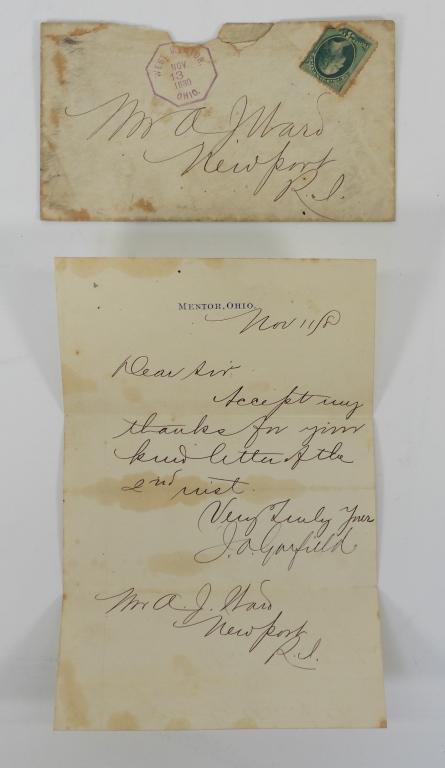 WEST MENTOR,
NOV
13
1880
OHIO.
Mr A J Ward
Newport
R. I.
MENTOR, OHIO.
Nov 11/80
Dear Sir.
Accept my
thanks for your
kind letter of the
2nd inst.
Very Truly Yours
J. A. Garfield
Mr A. J. Ward
Newport
R. I.